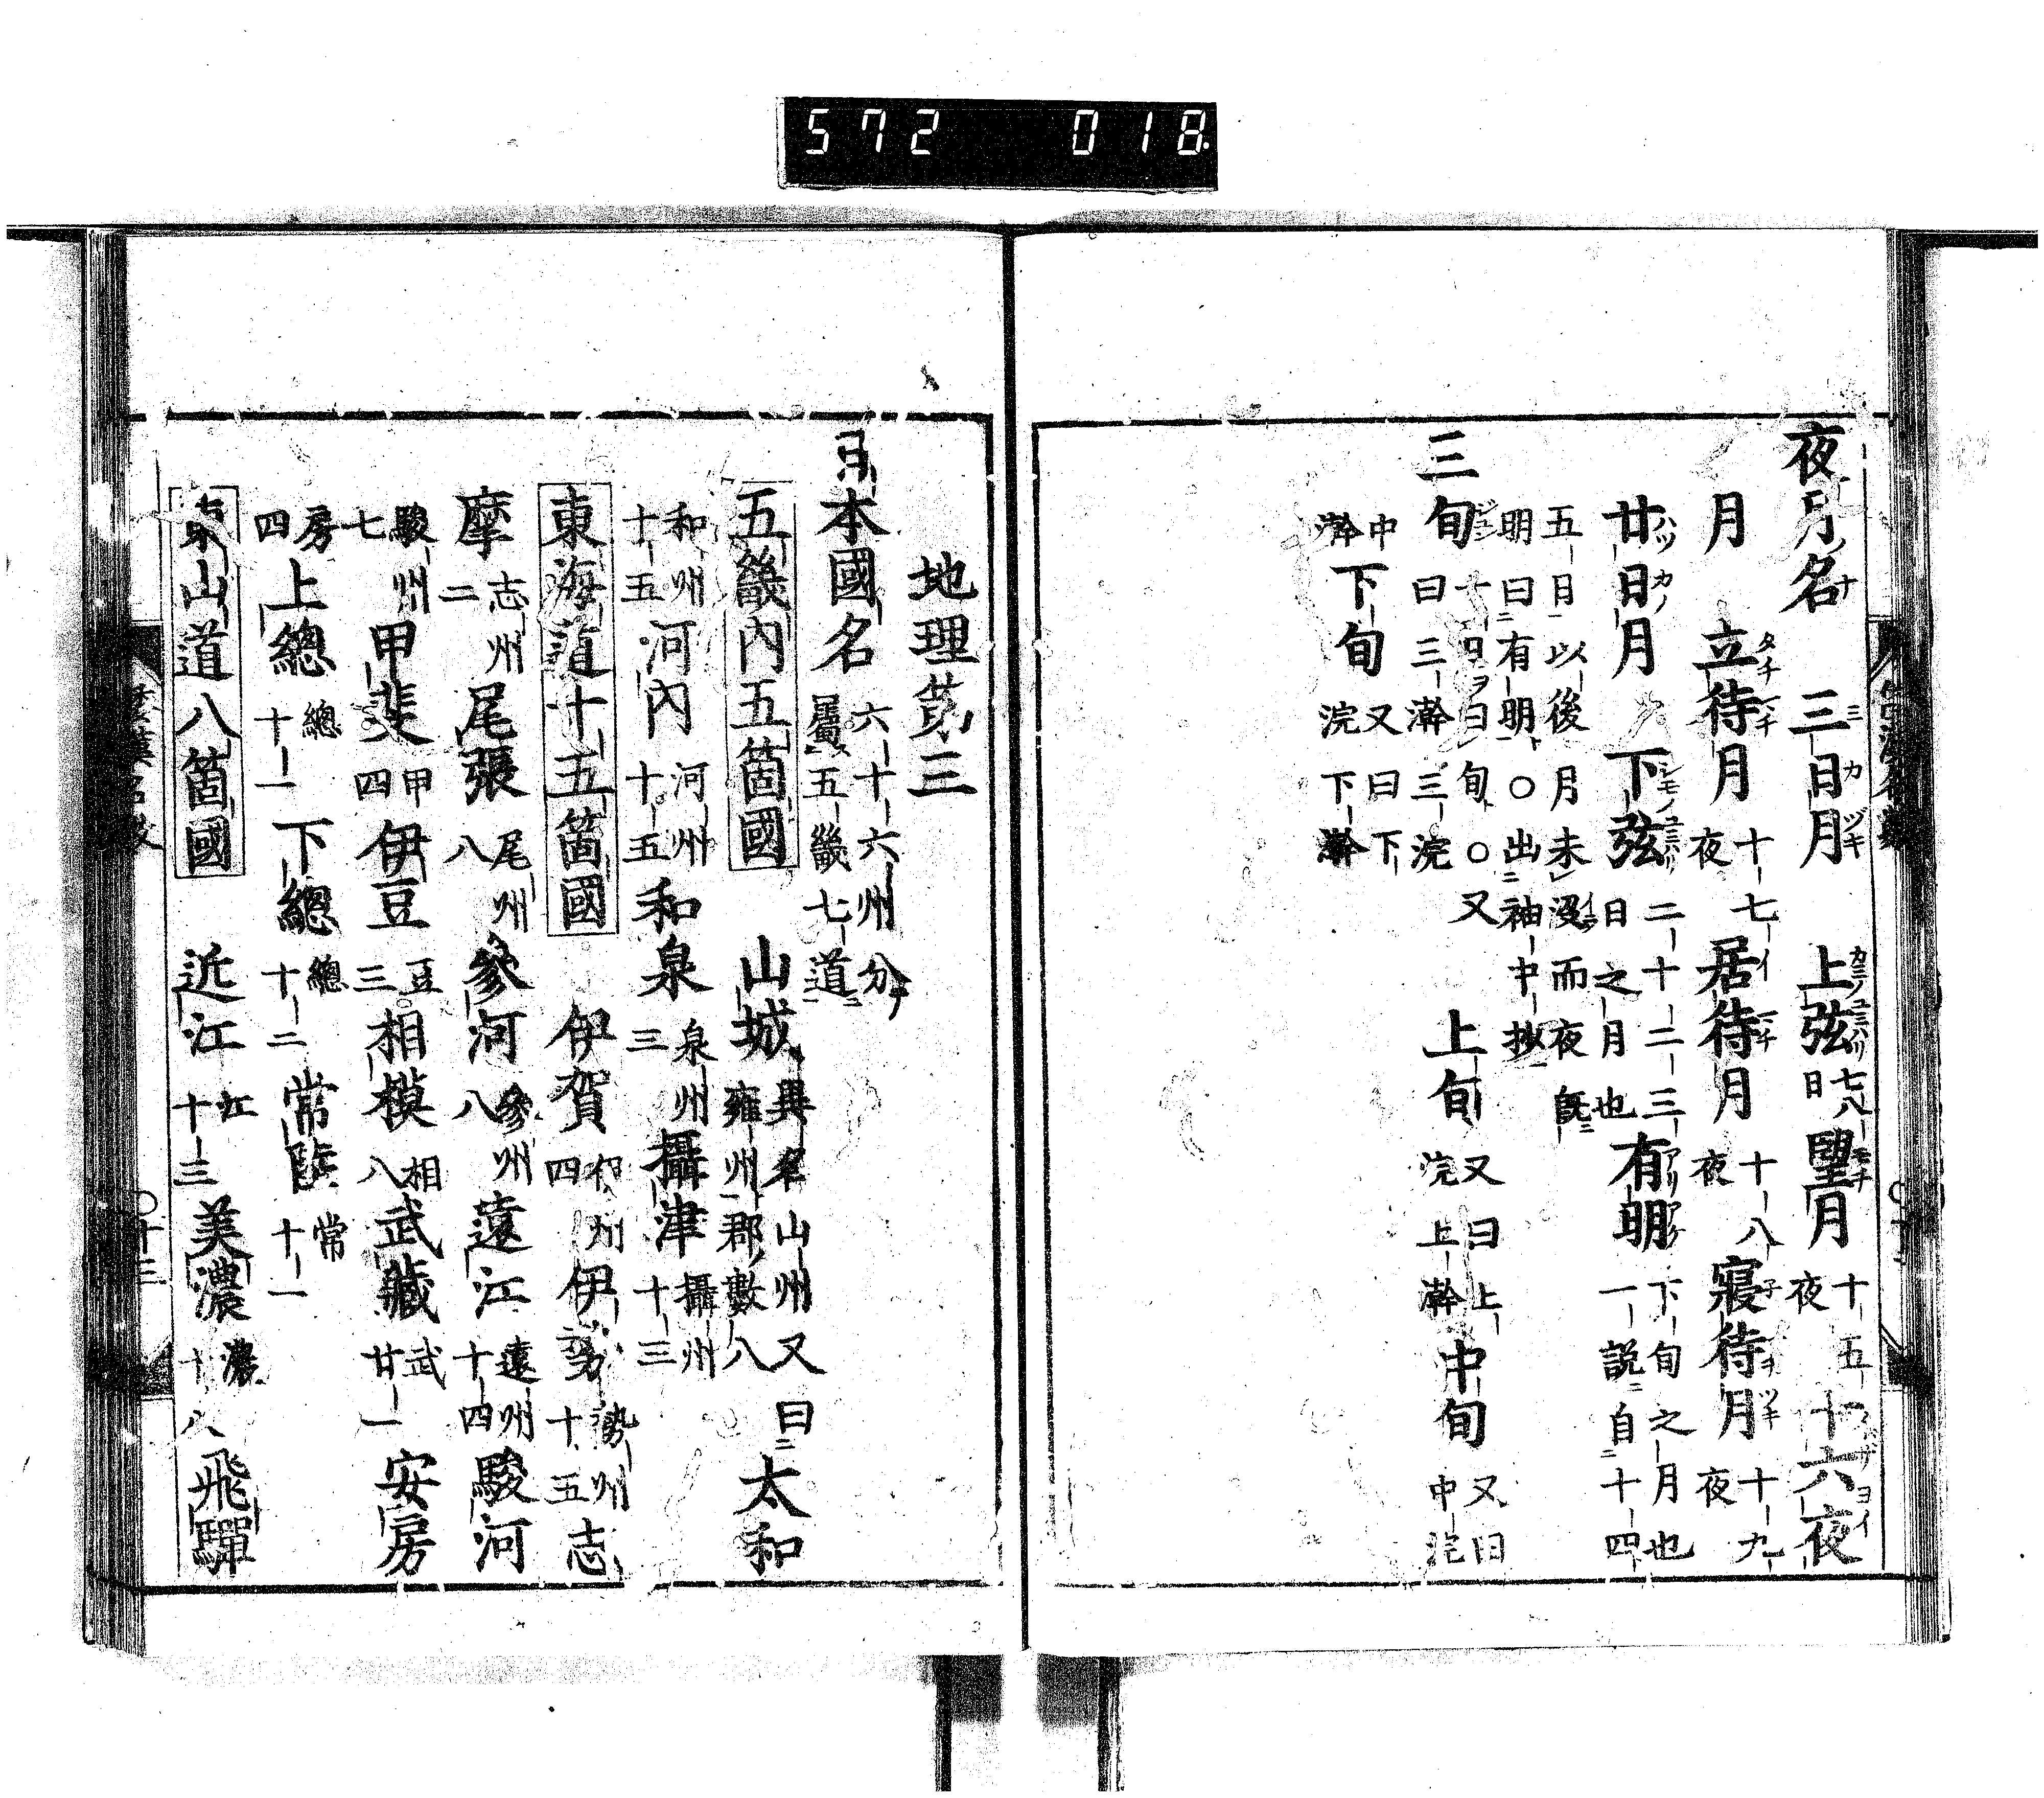 572 018
夜月名 三日月 上弦 七八日 望月 十五夜 十六夜
月 立待月 十七夜 居待月 十八夜 寢待月 十九夜
廿日月 下弦 二十二三日之月也 有明 下旬之月也一說自十四
五日以後月未沒而夜既
明曰有明○出袖中抄
三旬 十日ヲ曰旬○又曰三澣三浣 上旬 又曰上浣上澣 中旬 又曰中浣
中澣 下旬 又曰下浣下澣
地理苐三
日本國名 六十六州分テ屬ス五畿七道
五畿內五箇國 山城 異名山州又曰雍州郡數八 太和
和州十五 河內 河州十五 和泉 泉州三 攝津 攝州十三
東海道十五箇國 伊賀 伊州四 伊勢 勢州十五 志
摩 志州二 尾張 尾州八 參河 參州八 遠江 遠州十四 駿河
駿州七 甲斐 甲四 伊豆 豆三 相模 相八 武藏 武廿一 安房
房四 上總 總十一 下總 總十二 常陸 常十一
東山道八箇國 近江 江十三 美濃 濃十八 飛驒
十三